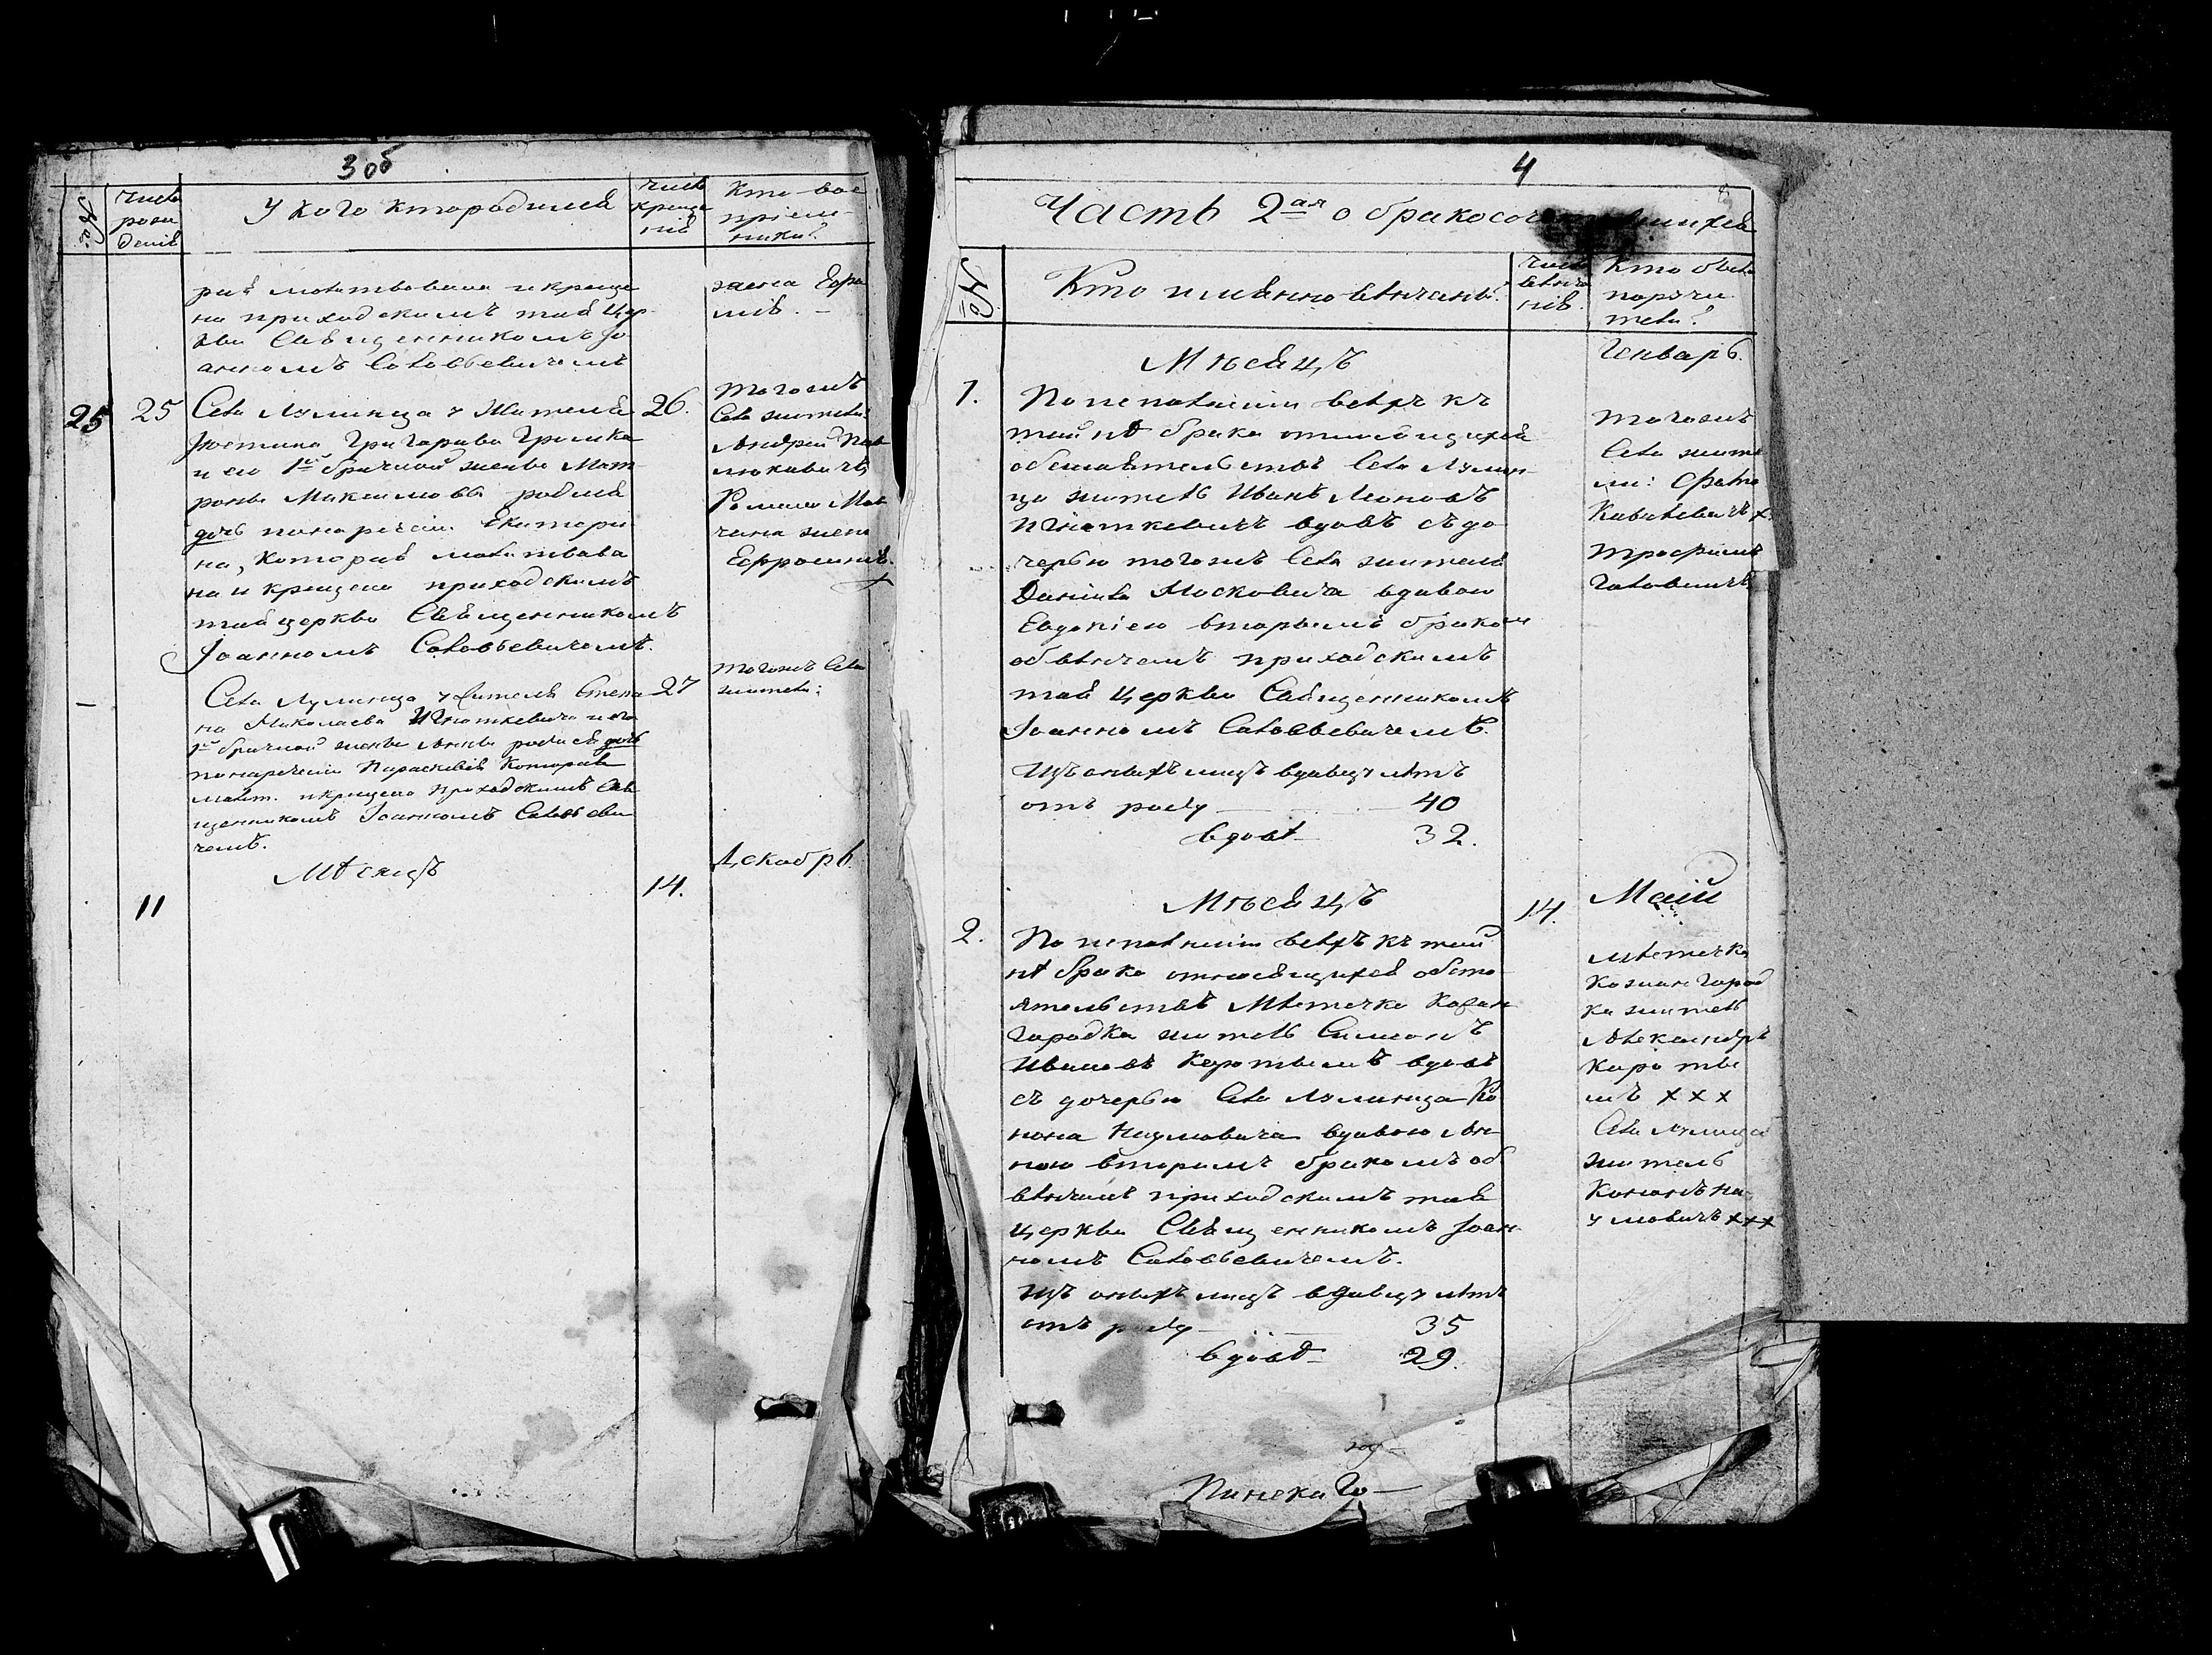 3 об
№
Числа
рожде
денія
У кого кто родился
Числа
креще
нія
Кто вос
пріем-
ники?
рая молитвована и креще
на приходскимъ той Цер
кви Священникомъ Іо
анномъ Соловьевичемъ
жена Евфи
мія. –
25
25
Села Лулинца у Жителя
Іустина Григорьева Громика
и его 1й брачной жены Мат
роны Максимовой родися
дочь по нареченіи Екатери
на, которая молитвова
на и крещена приходскимъ
той церкви Священникомъ
Іоанномъ Соловьевичемъ.
26.
тогожъ
Села жители
Андрей Пав
люкевичъ
жена
Ефросинія.
Села Лулинца у жителя Степа
на Николаева Игнаткевича и его
1й брачной жены Анны родися дочь
по нареченіи Параскевія Которая
молит. и крещена Приходскимъ Свя
щенникомъ Іоанномъ Соловьеви
чемъ.
27
тогожъ Села
жители:
Мѣсяцъ
Декабрь.
11
14.
4
Часть 2ая о бракосоч вшихся
№
Кто именно вѣнчаны?
Числа
вѣнча
нія.
Кто были
поручи
тели?
Мѣсяцъ
Генварь.
1.
По исполненіи всѣхъ къ
тайнѣ брака относящихся
обстоятельствъ Села Лулин-
ца житель Иванъ Леоновъ
Игнаткевичъ вдовъ съ до
черью тогожъ Села жителя
Даніила Московича вдовою
Евдокіею вторымъ бракомъ
обвѣнчанъ приходскимъ
той Церкви Священникомъ
Іоанномъ Соловьевичемъ.
Изъ оныхъ лицъ вдовцу лѣтъ
отъ роду — 40
вдовѣ 32.
тогожъ
Села жите
ли:
Трофимъ
Мѣсяцъ
14.
Маій
2.
По исполненіи всѣхъ къ тай
нѣ брака относящихся обсто
ятельствъ Мѣстечка Кожан
Городка житель Симеонъ
Ивановъ Коротышъ вдовъ
съ дочерью Села Лулинца Ко
нона Наумовича вдовою Ан
ною вторымъ бракомъ об
вѣнчанъ приходскимъ той
церкви Священникомъ Іоан
номъ Соловьевичемъ.
Изъ оныхъ лицъ вдовцу лѣтъ
отъ роду — 35
вдовѣ 29.
мѣстечка
Кожан Город
ка житель
Александръ
Кароты
шъ х х х
Села Лулинца
житель
Кононъ На
умовичъ ххх
Пинскаго